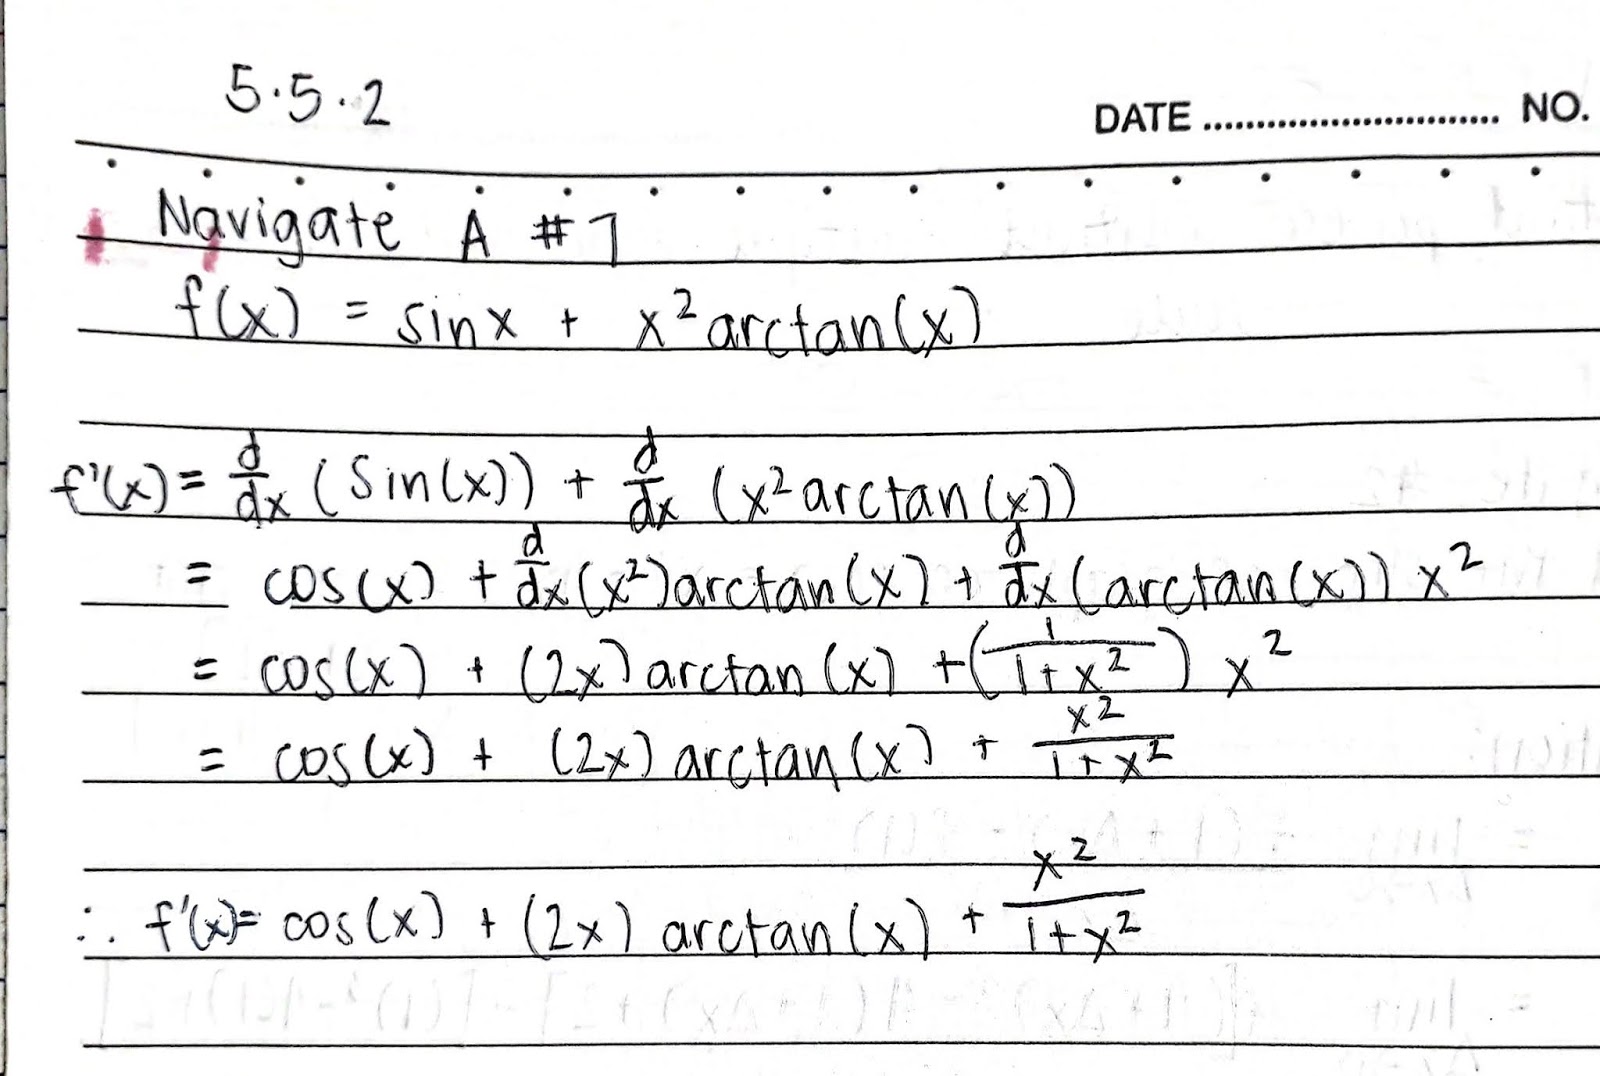 5.5.2
DATE ............................ NO.
Navigate A #7
f(x) = sinx + x² arctan(x)
f'(x) = d/dx (Sin(x)) + d/dx (x² arctan(x))
= cos(x) + d/dx (x²) arctan(x) + d/dx (arctan(x)) x²
= cos(x) + (2x) arctan(x) + (1/(1+x²)) x²
= cos(x) + (2x) arctan(x) + x²/(1+x²)
∴ f'(x) = cos(x) + (2x) arctan(x) + x²/(1+x²)